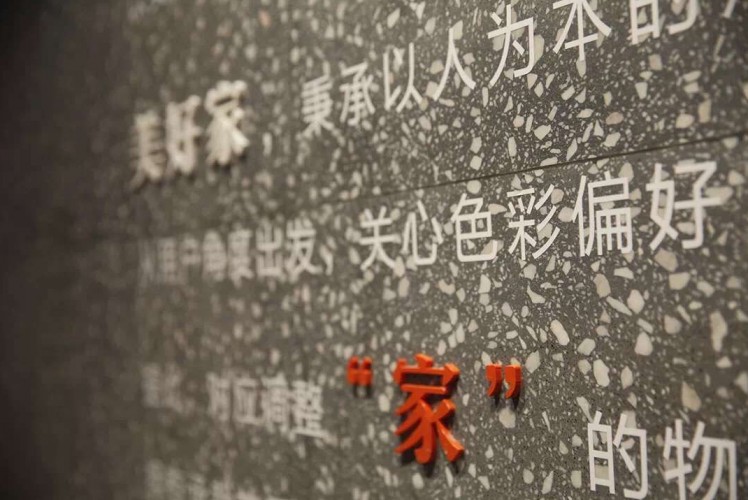 美好家 秉承以人为本的
出发，关心色彩偏好
对应调整“家”的物